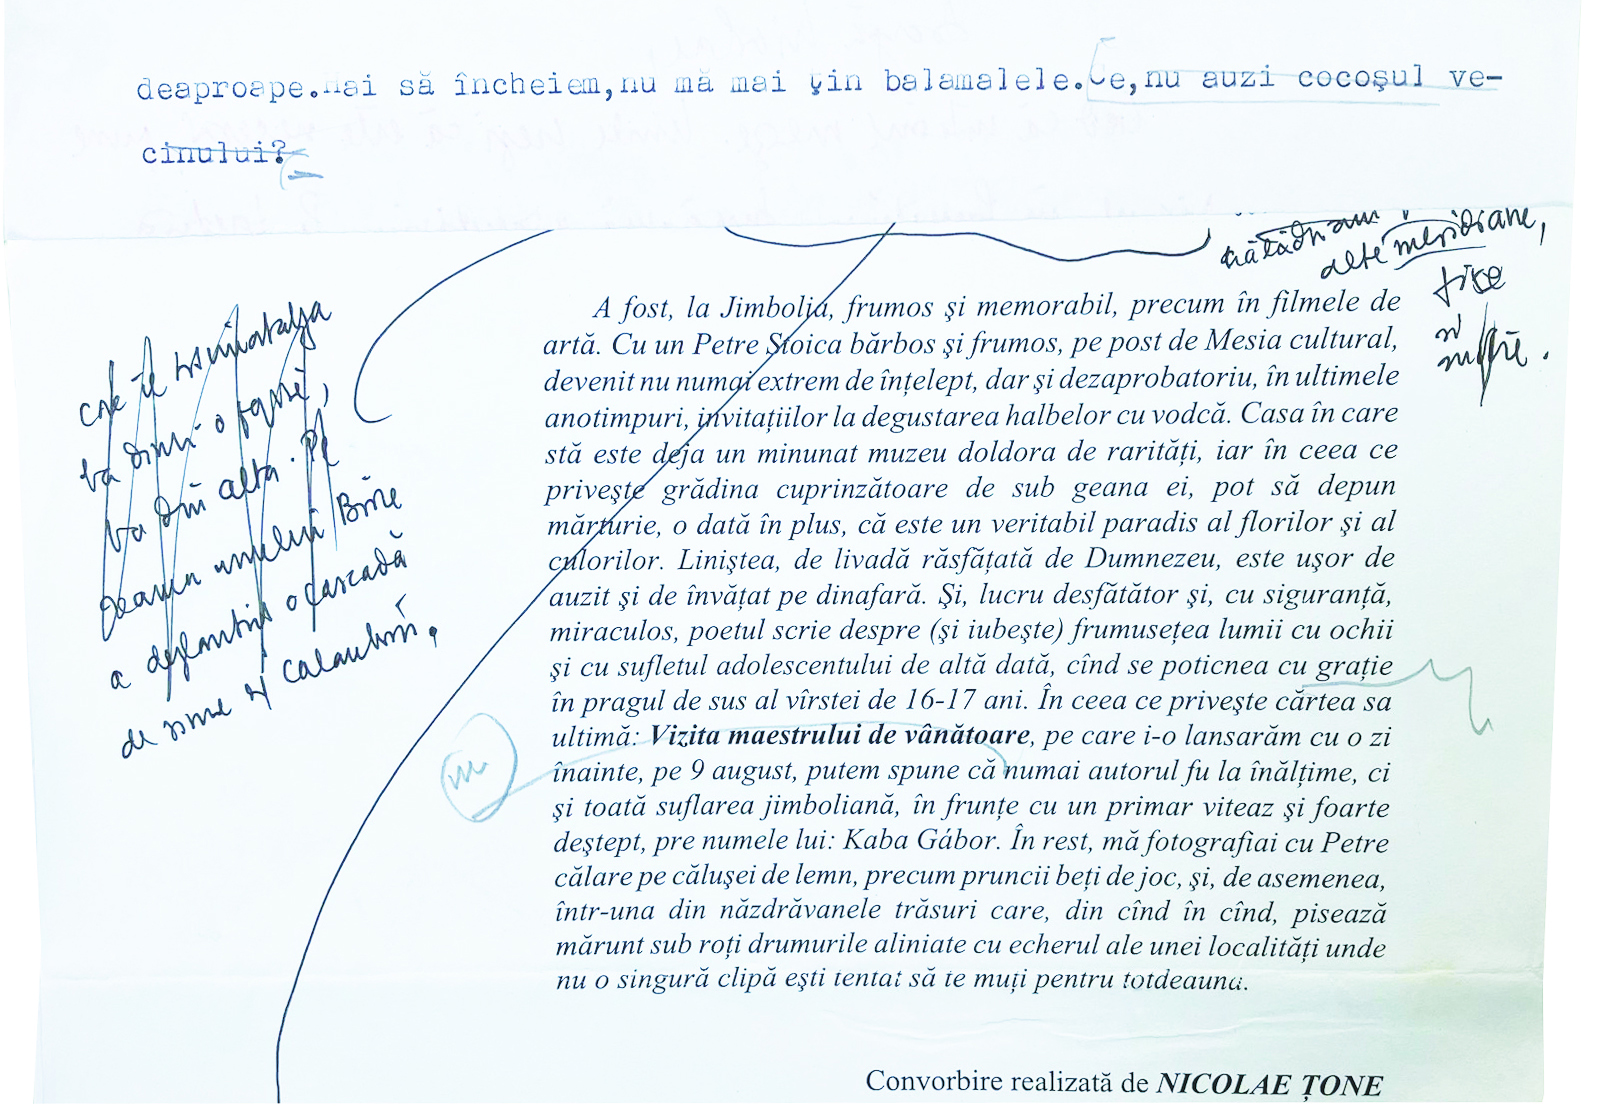 deaproape.Hai să încheiem,nu mă mai țin balamalele.Ce,nu auzi cocoşul ve-
cinului?
alte meridiane,
A fost, la Jimbolia, frumos şi memorabil, precum în filmele de
artă. Cu un Petre Stoica bărbos şi frumos, pe post de Mesia cultural,
devenit nu numai extrem de înțelept, dar şi dezaprobatoriu, în ultimele
anotimpuri, invitațiilor la degustarea halbelor cu vodcă. Casa în care
stă este deja un minunat muzeu doldora de rarități, iar în ceea ce
priveşte grădina cuprinzătoare de sub geana ei, pot să depun
mărturie, o dată în plus, că este un veritabil paradis al florilor şi al
culorilor. Liniştea, de livadă răsfățată de Dumnezeu, este uşor de
auzit şi de învățat pe dinafară. Şi, lucru desfătător şi, cu siguranță,
miraculos, poetul scrie despre (şi iubeşte) frumusețea lumii cu ochii
şi cu sufletul adolescentului de altă dată, cînd se poticnea cu grație
în pragul de sus al vîrstei de 16-17 ani. În ceea ce priveşte cărtea sa
ultimă: Vizita maestrului de vânătoare, pe care i-o lansarăm cu o zi
înainte, pe 9 august, putem spune că numai autorul fu la înălțime, ci
şi toată suflarea jimboliană, în frunțe cu un primar viteaz şi foarte
deştept, pre numele lui: Kaba Gábor. În rest, mă fotografiai cu Petre
călare pe căluşei de lemn, precum pruncii beți de joc, şi, de asemenea,
într-una din năzdrăvanele trăsuri care, din cînd în cînd, pisează
mărunt sub roți drumurile aliniate cu echerul ale unei localități unde
nu o singură clipă eşti tentat să te muți pentru totdeauna.
ba din alta.
a o cascadă
de
Convorbire realizată de NICOLAE ȚONE